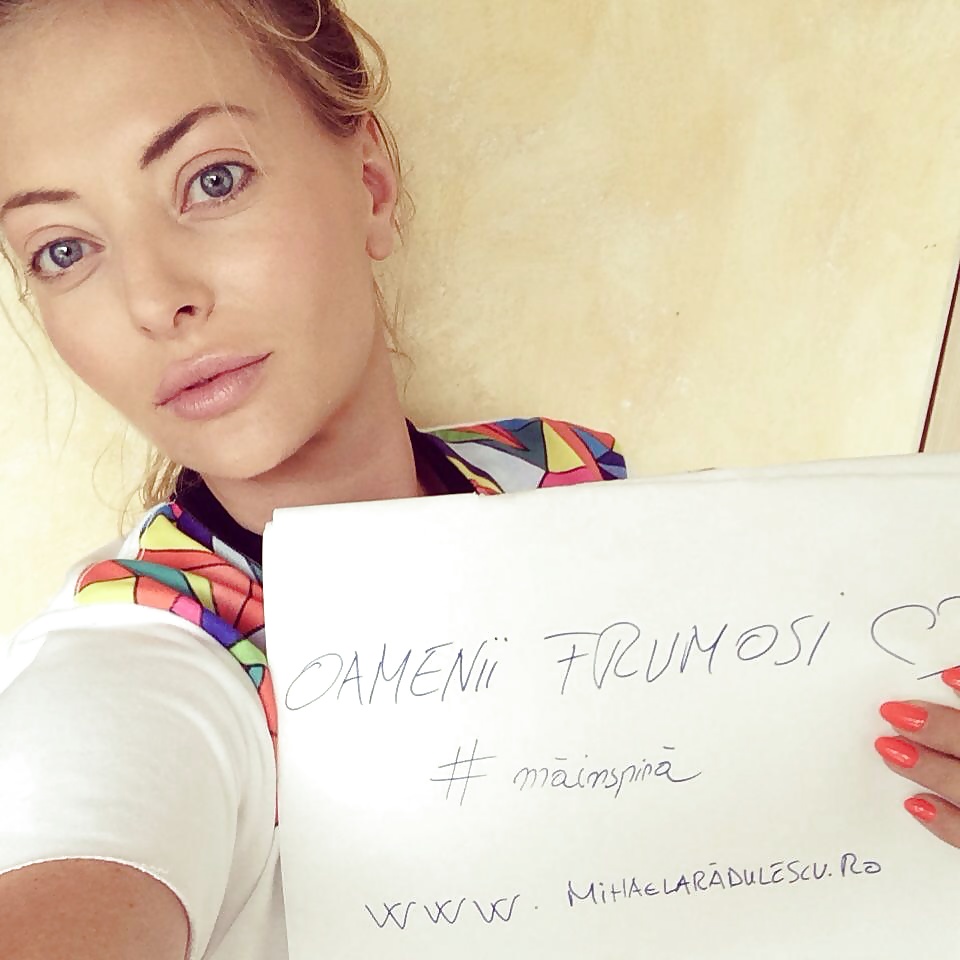 OAMENII FRUMOSI ♡
# măinspiră
www. MIHAELARĂDULESCU.RO